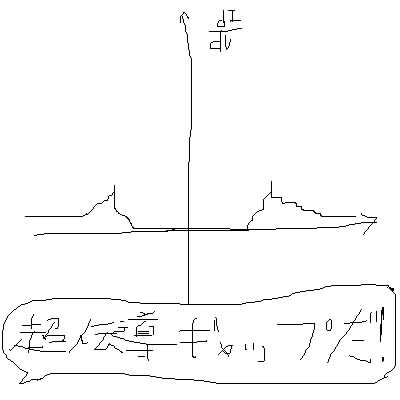 dI
dV
超伝導ギャップだ!